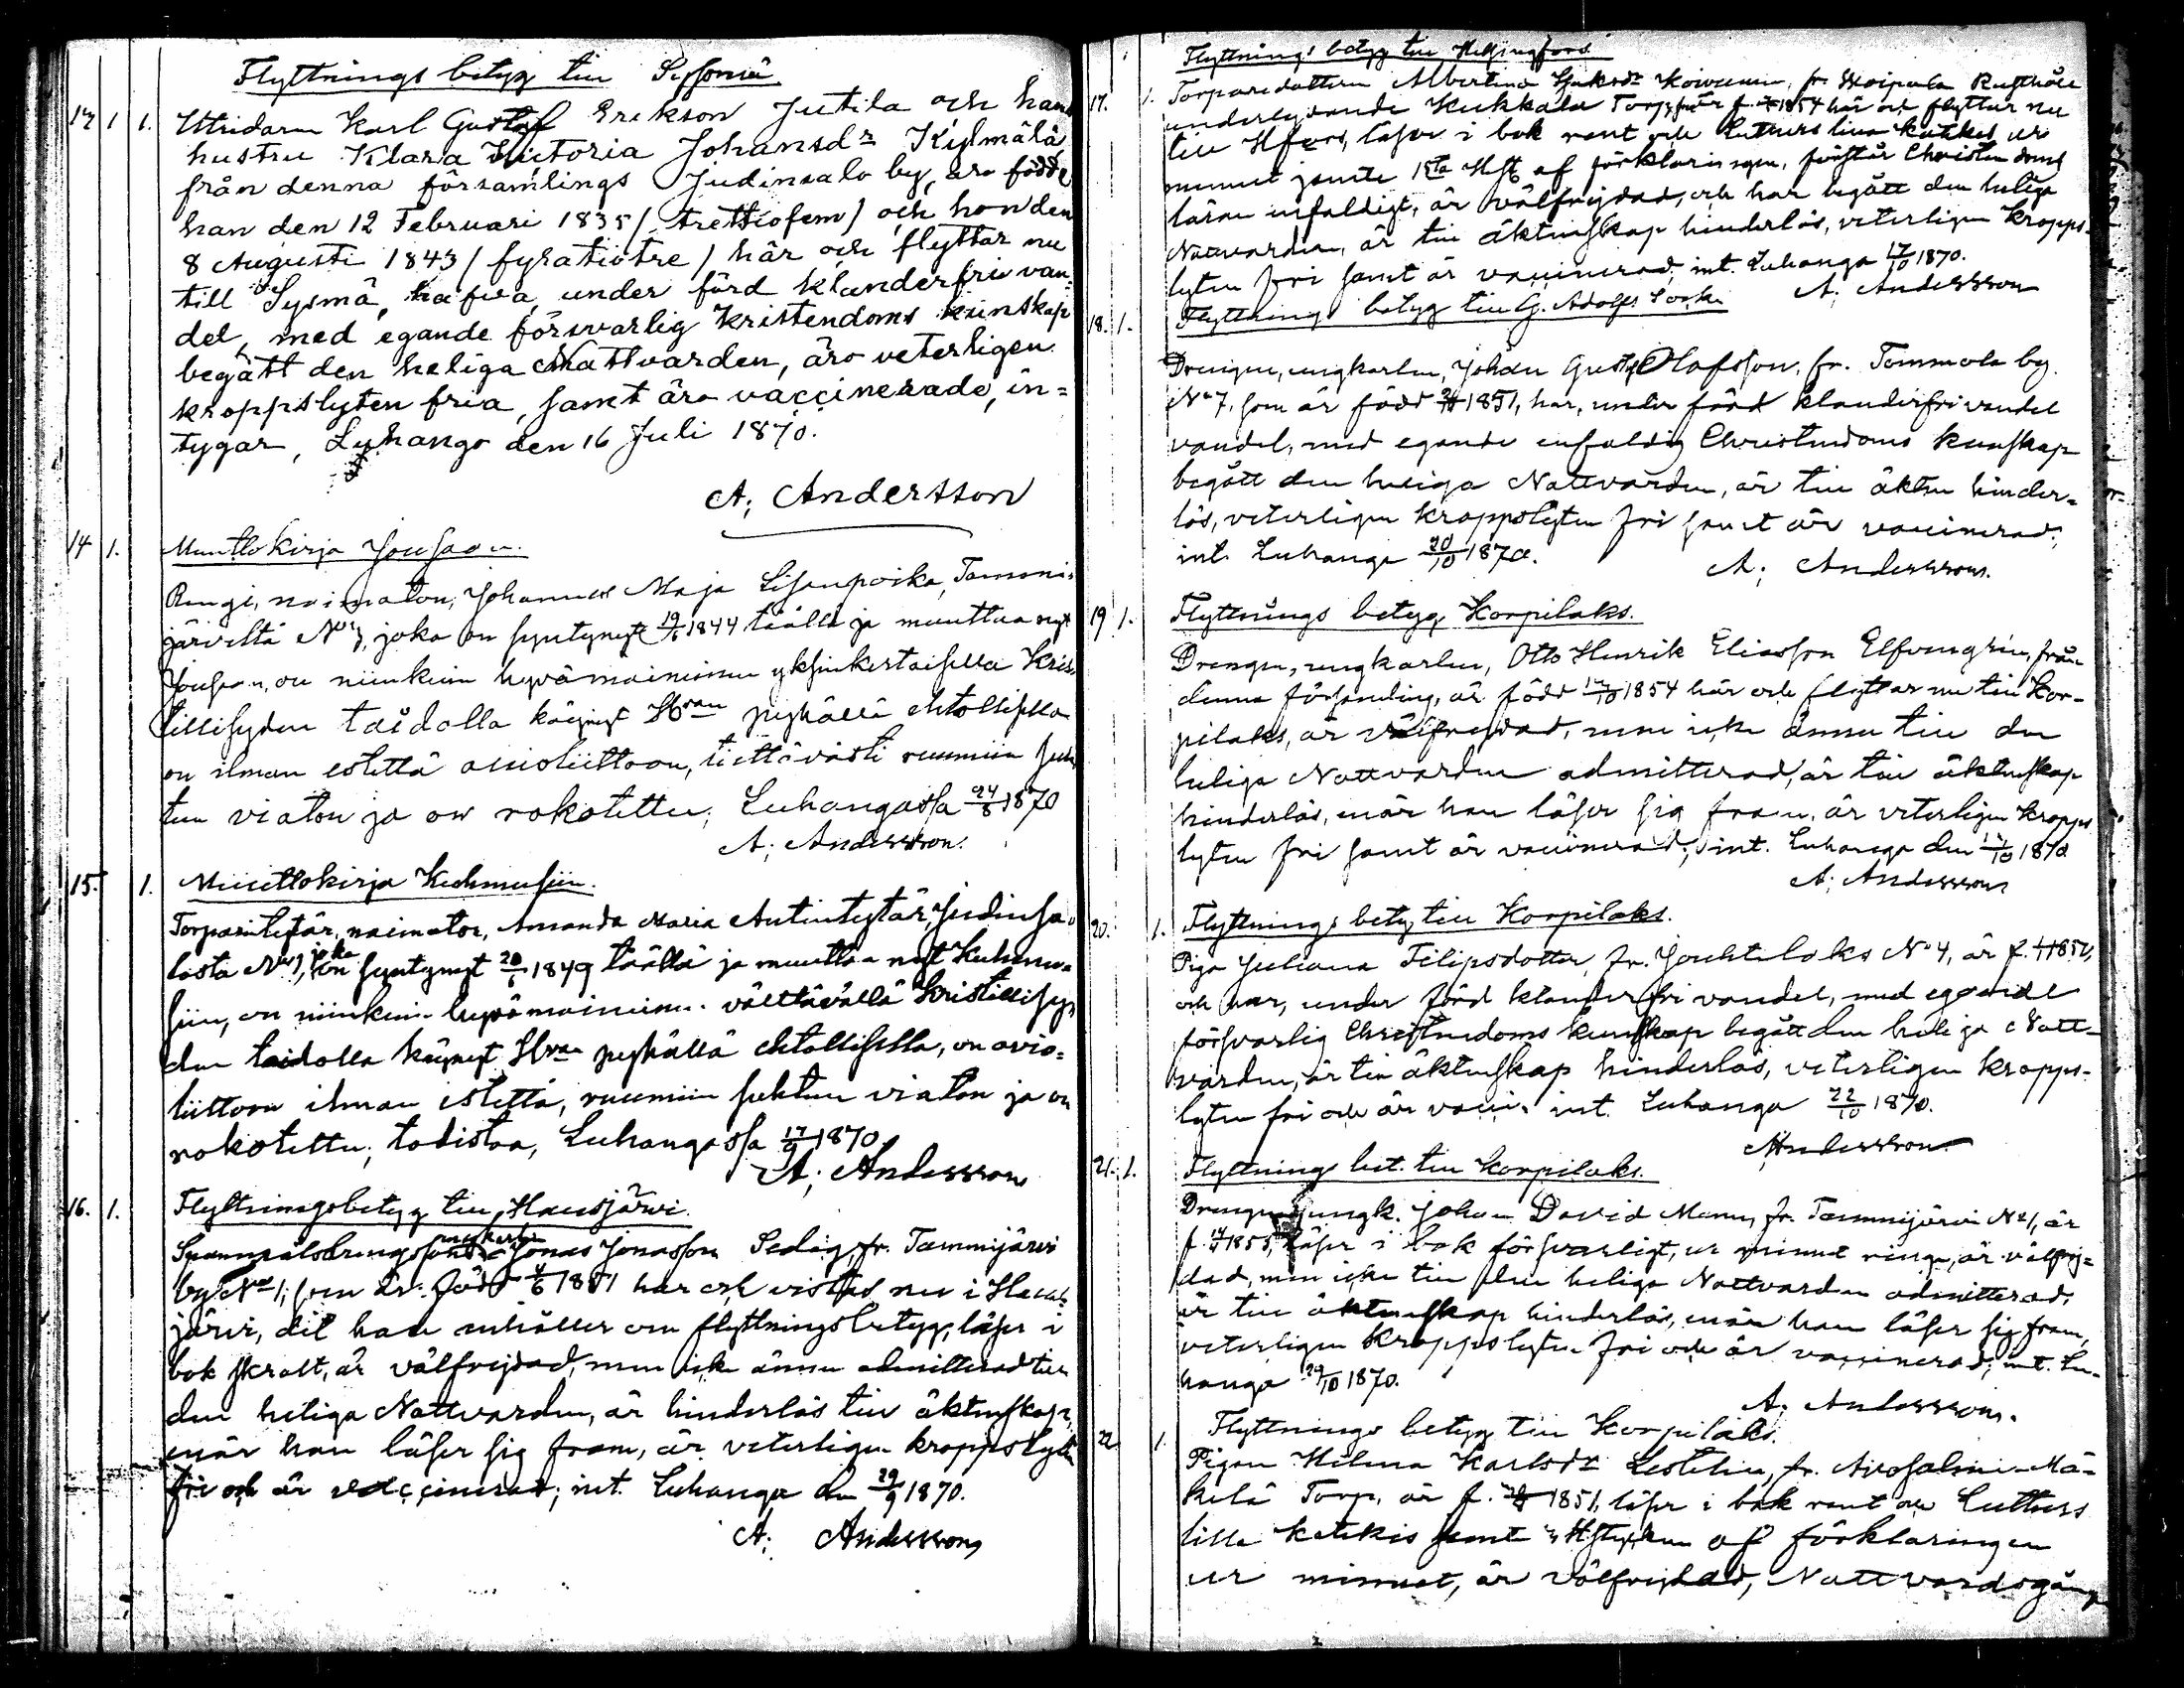 Flyttnings betyg till Sysmä
1. 1. Utridaren Karl Gustaf Erikson Jutila och hans
hustru Klara Victoria Johansdr Kylmälä
från denna församlings Judinsalo by, äro födde
han den 12 Februari 1835 / trettiofem / och hon den
8 Augusti 1843 / fyratiotre / här och flyttar nu
till Sysmä, hafva, under förd klanderfri van-
del, med egande försvarlig Kristendoms kunskap
begått den heliga Nattvarden, äro veterligen
kroppslyten fria, samt äro vaccinerade, in=
tygar, Luhango den 16 Juli 1870.
A; Andersson
14 1. Muuttokirja Joutsaan.
Rengi, naimaton, Johannes Maja Lisanpoika, Tammi-
järveltä No, joka on syntynyt 1844 täällä ja muuttaa nyt
Joutsaan, on niinkuin hyvämaininen yksinkertaisella Kris-
tillisyden taidolla käynyt Hran pyhällä ehtollisella
on ilman estettä avioliittoon, tiettävästi ruumiin suh-
tun viaton ja on rokotettu; Luhangassa 24/8 1870
A; Andersson.
15. 1. Muuttokirja Kuhmusiin.
Torparintytär, naimaton, Amanda Maria Antintytär, Judinsa-
losta No 1, joka on syntynyt 1849 täällä ja muuttaa nyt Kuhmu-
siin, on niinkuin hyvämaininen välttävällä Kristillisy-
den taidolla käynyt Hran pyhällä ehtollisella, on avio=
liittoon ilman estettä, ruumiin suhtun viaton ja on
rokotettu; todistaa, Luhangassa 17/9 1870
A; Andersson
16. 1. Flyttningsbetyg till Hausjärvi.
ungkarlen
Jonas Jonasson Sedig, fr. Tammijärvi
by No 1, som är född 1851 här och vistas nu i Haus-
järvi, dit han anhåller om flyttningsbetyg, läser i
bok skralt, är välfrejdad, men icke ännu admitterad till
den heliga Nattvarden, är hinderlös till äktenskap,
när han läser sig fram, är veterligen kroppslyten
fri och är vaccinerad; int. Luhanga den 29/9 1870.
A; Andersson
Flyttnings betyg till Helsingfors
17. 1. Torparedottern Albertina Koivunen, fr. Rusthåll
underlydande Kukkala Torp, är f. 1854 här och flyttar nu
till Hfors, läser i bok rent och Luthers lilla katkes ur
minnet jemte af förklaringen, förstår Christendoms
läran enfaldigt, är välfrejdad, och har begått den heliga
Nattvarden, är till äktenskap hinderlös, veterligen kropps-
lyten fri samt är vaccinerad; int. Luhanga 17/10 1870.
A. Andersson
18. 1. Flyttnings betyg till G. Adolfs Sock:
Drengen, ungkarlen, Johan Gustaf Olofsson, fr. Tommola by
No 7, som är född 1851, har, under förd klanderfri vandel
vandel, med egande enfaldig Christendoms kunskap
begått den heliga Nattvarden, är till äkten hinder=
lös, veterligen kroppslyten fri samt är vaccinerad;
int. Luhanga 20/10 1870.
A; Andersson.
19 1. Flyttnings betyg Korpilaks.
Drengen, ungkarlen, Otto Henrik Eliasson Elfvengren, från
denna församling, är född 1854 här och flyttar nu till Kor-
pilaks, är välfrejdad, men icke ännu till den
heliga Nattvarden admitterad, är till äktenskap
hinderlös, när han läser sig fram, är veterligen kropps
lyten fri samt är vaccinerad; int. Luhanga den 1870
A; Andersson
20. 1. Flyttnings betyg till Korpilaks.
Piga Juliana Filipsdotter, fr. Jouhtilaks No 4, är f.
och har, under förd klanderfri vandel, med egande
försvarlig Christendoms kunskap begått den heliga Natt-
varden, är till äktenskap hinderlös, veterligen kropps-
lyten fri och är vacci. int. Luhanga 22/10 1870.
Andersson
21. 1. Flyttnings bet. till Korpilaks.
Drengen, ungk. Johan David Manu, fr. Tammijärvi No 1, är
f. 1855, läser i bok försvarligt, ur minnet ringa, är välfrej=
dad, men icke till den heliga Nattvarden admitterad,
är till äktenskap hinderlös, när han läser sig fram,
veterligen kroppslyten fri och är vaccinerad; int. Lu-
hanga 29/10 1870.
A; Andersson.
22 1. Flyttnings betyg till Korpilaks.
Pigan Milina Karlsdr Lestelin, fr. Avosalmi-Mä-
kelä Torp, är f. 1851, läser i bok rent och Luthers
lilla katekis jemte Hstycken af förklaringen
ur minnet, är välfrejdad, Nattvardsgång